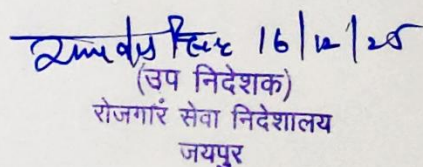 16/12/25
(उप निदेशक)
रोजगार सेवा निदेशालय
जयपुर